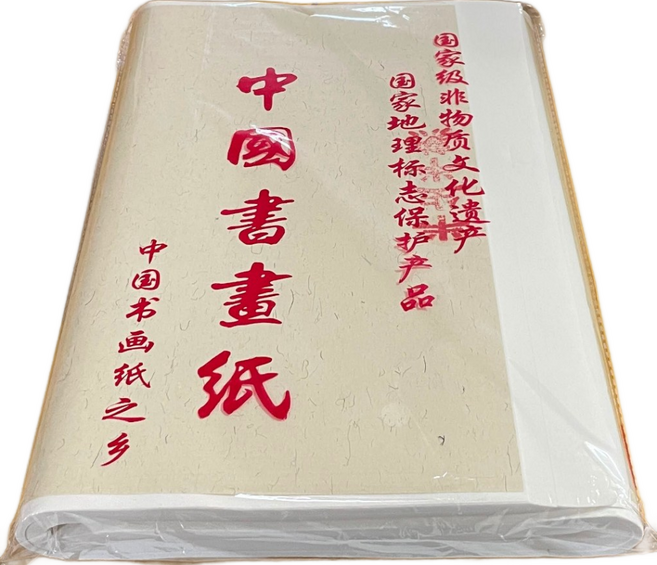 国家级非物质文化遗产
国家地理标志保护产品
中國書畫紙
中国书画纸之乡